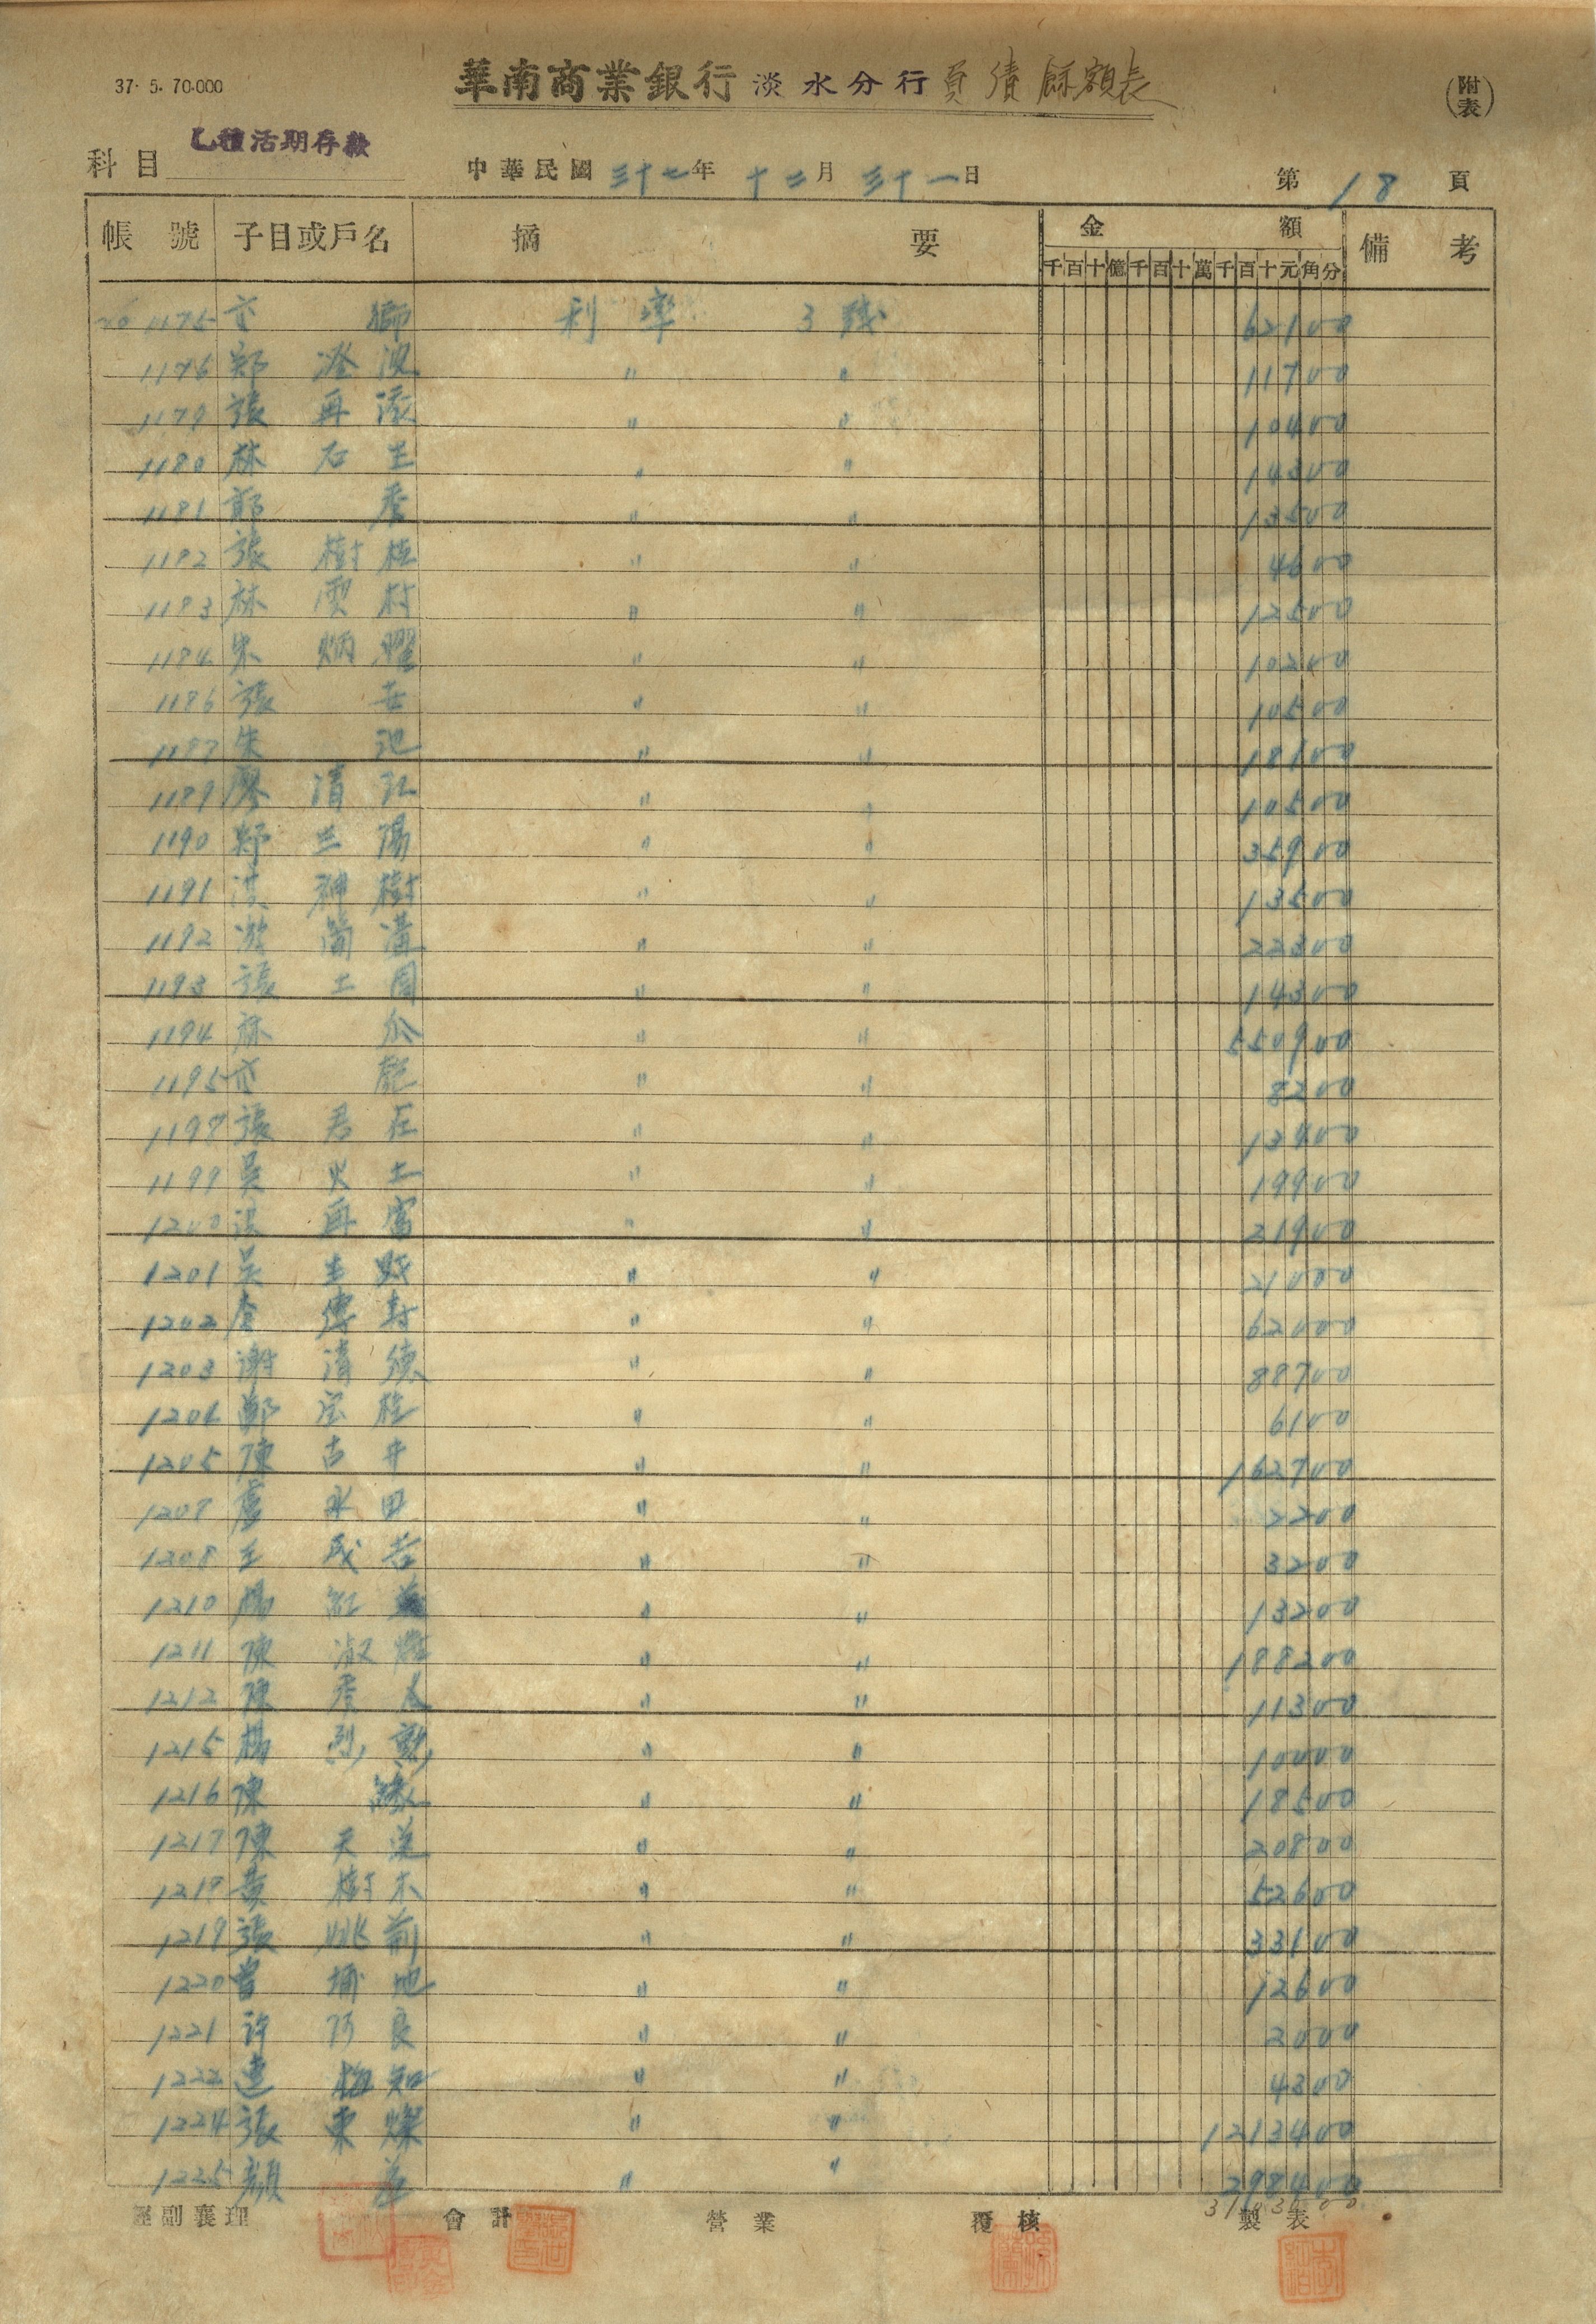 37. 5. 70.000
華南商業銀行 淡水分行 負債餘額表
(附表)
科目 乙種活期存款
中華民國 三十七年 十二月 三十一日
第 18 頁
帳號 子目或戶名 摘要 金額 備考
千百十億千百十萬千百十元角分
1175 利率 3 62100
1176 鄭 澄波 〃 〃 11700
1179 張 再添 〃 〃 10400
1180 林 石生 〃 〃 14300
1181 〃 〃 13500
1182 張 樹枝 〃 〃 4600
1183 林 雲村 〃 〃 12500
1184 朱 炳耀 〃 〃 10200
1186 張 〃 〃 10500
1187 朱 池 〃 〃 18100
1189 廖 清江 〃 〃 10500
1190 〃 〃 35900
1191 洪 神樹 〃 〃 13500
1192 〃 〃 22300
1193 張 土周 〃 〃 14300
1194 林 〃 〃 550900
1195 〃 〃 8200
1198 張 君在 〃 〃 13400
1199 吳 火土 〃 〃 19900
1200 洪 再富 〃 〃 31900
1201 吳 生財 〃 〃 21000
1202 李 傳封 〃 〃 62000
1203 謝 清德 〃 〃 88700
1204 鄭 宝桂 〃 〃 6100
1205 陳 古井 〃 〃 162700
1207 盧 永田 〃 〃 2200
1208 王 成吉 〃 〃 3200
1210 楊 紅 〃 〃 13200
1211 陳 淑 〃 〃 188200
1212 陳 〃 〃 11300
1215 楊 烈勲 〃 〃 10000
1216 陳 緣 〃 〃 18500
1217 陳 天送 〃 〃 20800
1218 黃 樹木 〃 〃 52600
1219 張 姚前 〃 〃 33100
1220 曾 埔地 〃 〃 12600
1221 許 乃良 〃 〃 2000
1222 連 梅知 〃 〃 4300
1224 張 東燦 〃 〃 1213400
1225 顏 〃 〃 298400
經副襄理 會計 營業 覆核 製表